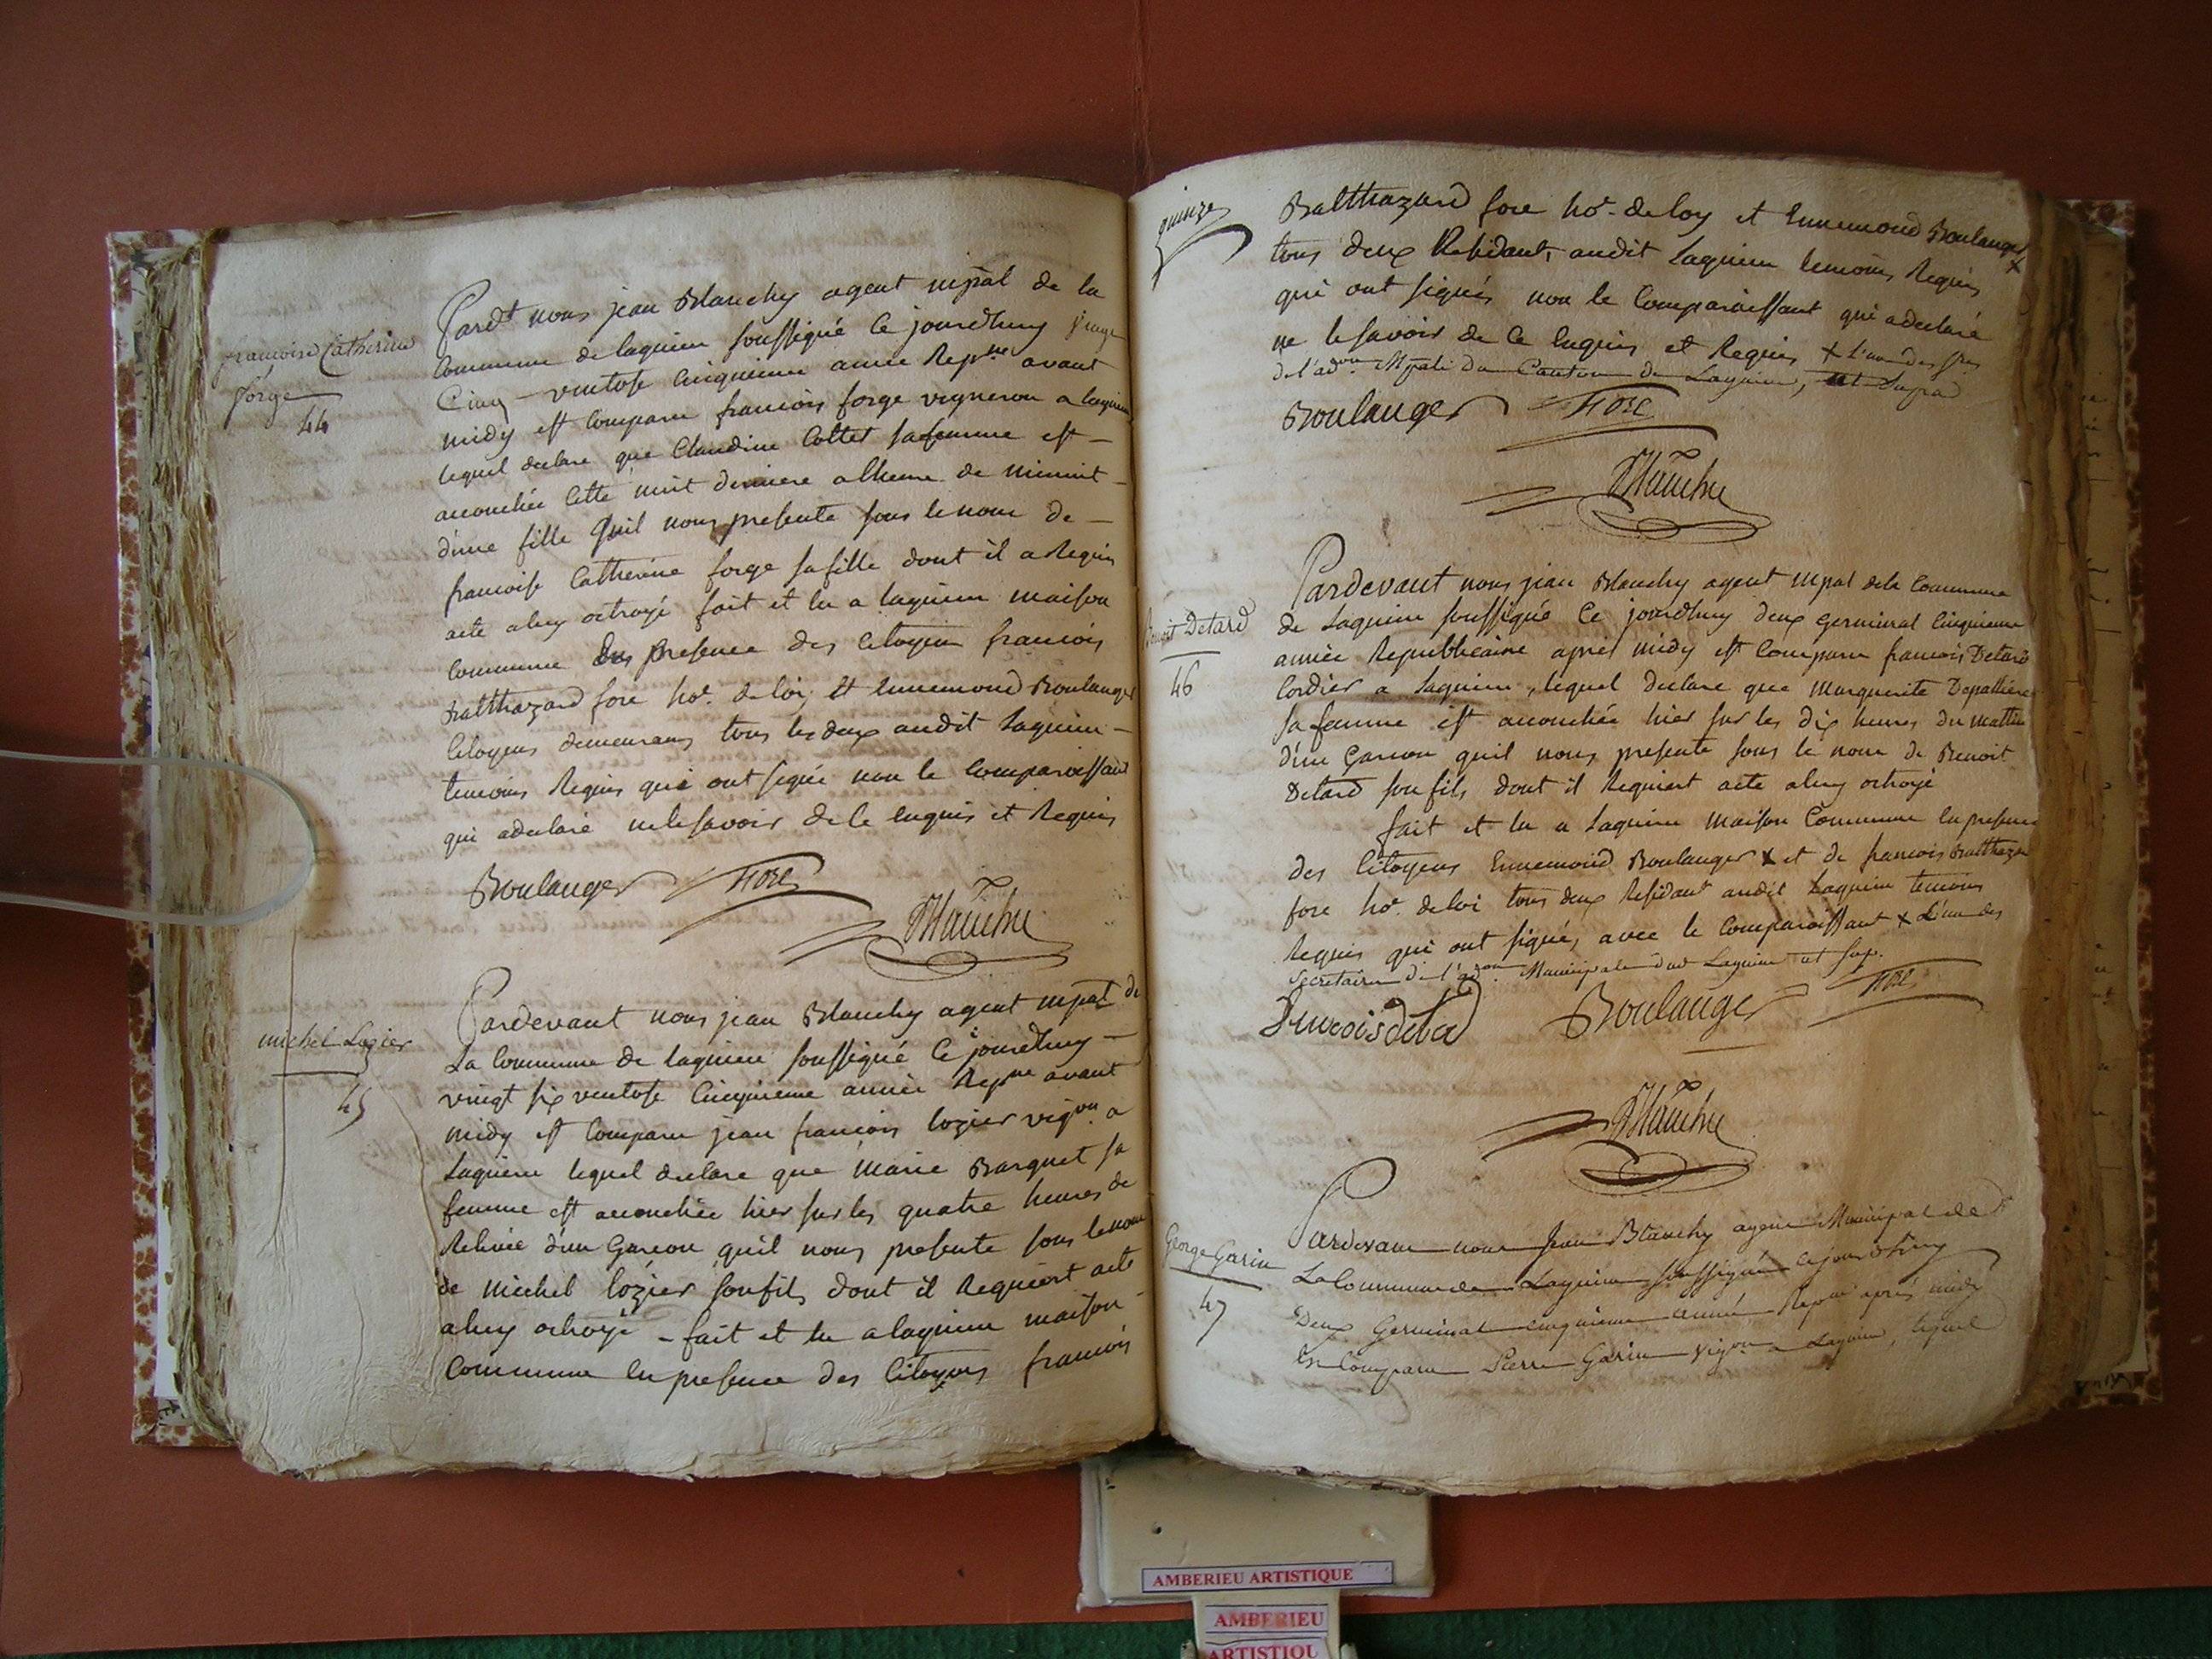 francoise Catherine
forge
44
Pardt nous jean Blanchy agent mpal de la
Commune de lagnieu soussigné Ce jourdhuy vingt
Cinq - ventose Cinquieme année Repne avant
midy est Comparu francois forge vigneron a lagnieu
lequel declare que Claudine Cottet sa femme est -
accouchée Cette nuit derniere alheure de minuit -
d'une fille Quil nous presente sous le nom de -
francoise Catherine forge sa fille dont il a Requis
acte aluy octroyé fait et lu a lagnieu maison
Commune presence des Citoyen francois
Balthazard fore ho. de loi, et Ennemond Boulanger
Citoyens demeurans tous les deux audit Lagnieu -
temoins Requis qui ont signé non le Comparoissant
qui adeclaré nele savoir de Ce enquis et Requis
Boulanger Fore
Blanchy
michel Lozier
45
Pardevant nous jean Blanchy agent mpal de
La Commune de lagnieu soussigné Ce jourdhuy -
vingt six ventose Cinquieme année Repne avant
midy est Comparu jean francois lozier vigon a
Lagnieu lequel declare que Marie Barquet sa
femme est accouchée hier sur les quatre heures de
Relivée d'un Garcon quil nous presente sous lenom
de michel lozier son fils dont il Requiert acte
aluy octroyé - fait et lu a lagnieu maison -
Commune En presence des Citoyens francois
quinze
Balthazard fore ho. de loy et Ennemond Boulanger x
tous deux Residants audit Lagnieu temoins Requis
qui ont signés non le Comparoissant qui adeclaré
ne le savoir de Ce Enquis et Requis x L'un des
de l'adon Mpale Du Canton de Lagnieu, ut Supra
Boulanger Fore
Blanchy
Benoit Detard
46
Pardevant nous jean Blanchy agent mpal dela Commune
de Lagnieu soussigné Ce jourdhuy deux germinal Cinquieme
année Republicaine apres midy est Comparu francois Detard
Cordier a Lagnieu, lequel declare que Marguerite Depalliere
sa femme est accouchée hier sur les dix heures du mattin
d'un Garcon quil nous presente sous le nom de Benoit
Detard son fils dont il Requiert acte aluy octroyé
fait et lu a Lagnieu Maison Commune En presence
des Citoyens Ennemond Boulanger x et de francois Balthazar
fore ho. de loi tous deux Residant audit Lagnieu temoins
Requis qui ont signés avec le Comparoissant x L'un des
Secretaires de l'adon Municipale dud Lagnieu ut sup.
francois detard Boulanger Fore
Blanchy
George Garin
47
Pardevant nous Jean Blanchy agent Municipal de
La Commune de Lagnieu soussigné cejourdhuy
Deux Germinal cinquieme année Repne après midy
Est Comparu Pierre Garin Vigon a Lagnieu, lequel
AMBERIEU ARTISTIQUE
AMBERIEU
ARTISTIQU